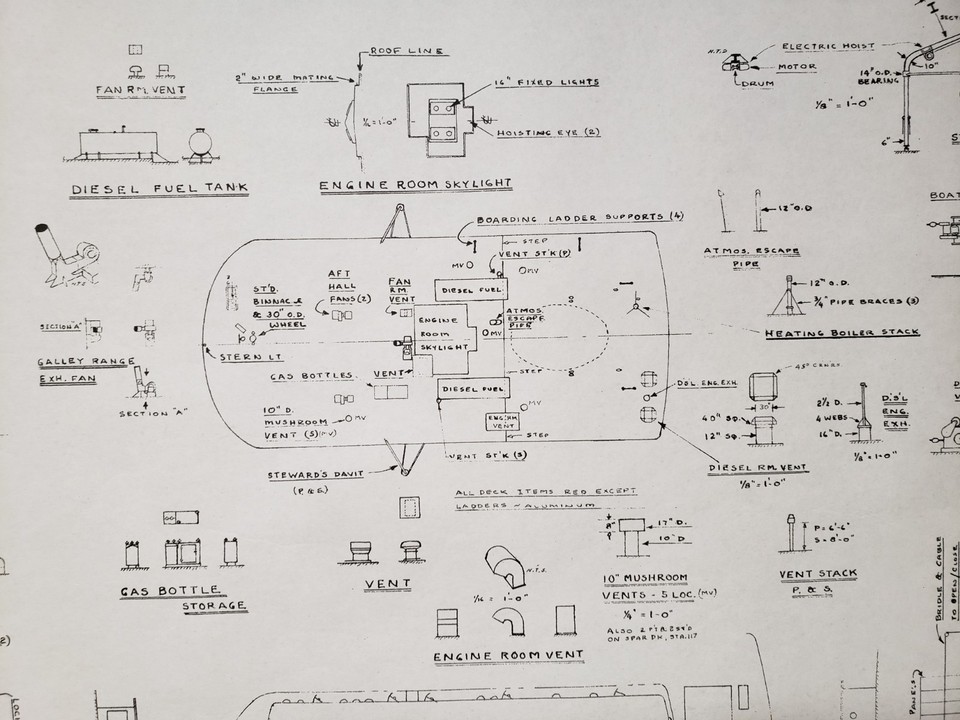 FAN RM. VENT
DIESEL FUEL TANK
ROOF LINE
2" WIDE MATING
FLANGE
16" FIXED LIGHTS
HOISTING EYE (2)
ENGINE ROOM SKYLIGHT
N.T.S
ELECTRIC HOIST
MOTOR
DRUM
14" O.D.
BEARING
10"
1/8" = 1'-0"
6"
BOARDING LADDER SUPPORTS (4)
STEP
VENT ST'K (P)
MV
MV
AFT
HALL
FANS (2)
FAN
RM
VENT
DIESEL FUEL
ST'D.
BINNACLE
& 30" O.D.
WHEEL
ENGINE
ROOM
SKYLIGHT
ATMOS.
ESCAPE
PIPE
MV
STERN LT
GAS BOTTLES
VENT
STEP
DIESEL FUEL
10" D.
MUSHROOM
VENT (5) (MV)
MV
MV
ENG. RM
VENT
STEP
VENT ST'K (S)
STEWARD'S DAVIT
(P. & S.)
ALL DECK ITEMS RED EXCEPT
LADDERS ~ ALUMINUM
12" O.D
ATMOS. ESCAPE
PIPE
12" O.D.
3/4" PIPE BRACES (3)
HEATING BOILER STACK
SECTION "A"
GALLEY RANGE
EXH. FAN
SECTION "A"
D'S'L. ENG. EXH.
30"
40" SQ.
12" SQ.
2 1/2 D.
4 WEBS
16" D.
D'S'L
ENG.
EXH.
1/8" = 1'-0"
DIESEL RM. VENT
1/8" = 1'-0"
GAS BOTTLE
STORAGE
VENT
N.T.S.
1/16 = 1'-0"
ENGINE ROOM VENT
17" D.
10" D
10" MUSHROOM
VENTS - 5 LOC. (MV)
1/4" = 1'-0"
ON SPAR DK, STA. 117
P = 6'-6"
S = 8'-0"
VENT STACK
P. & S.
BRIDLE & CABLE
TO OPEN/CLOSE
PANELS